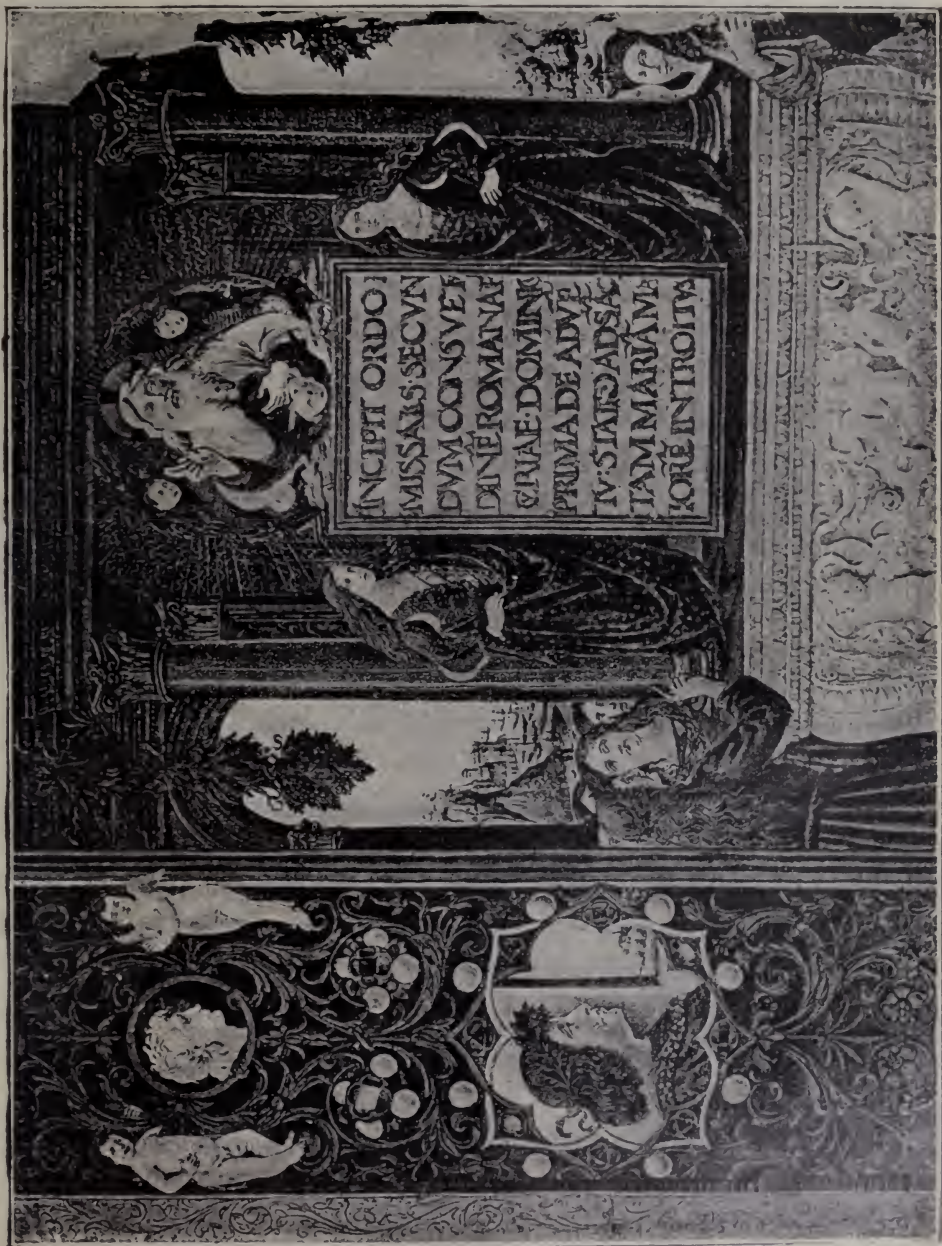 INCIPIT ORDO
MISSALIS SECVN
DVM CONSVET
DINĒ ROMANAE
CVRIAE·DOMINIC
PRIMA DE ADVĒ
TV·STATIO AD SĀC
TAM MARIAM M
IOREM INTROITVS